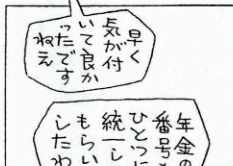 早く
気が付
いて良か
ったです
ねえ
年金の
番号を
ひとつに
統一し
もらい
したわ